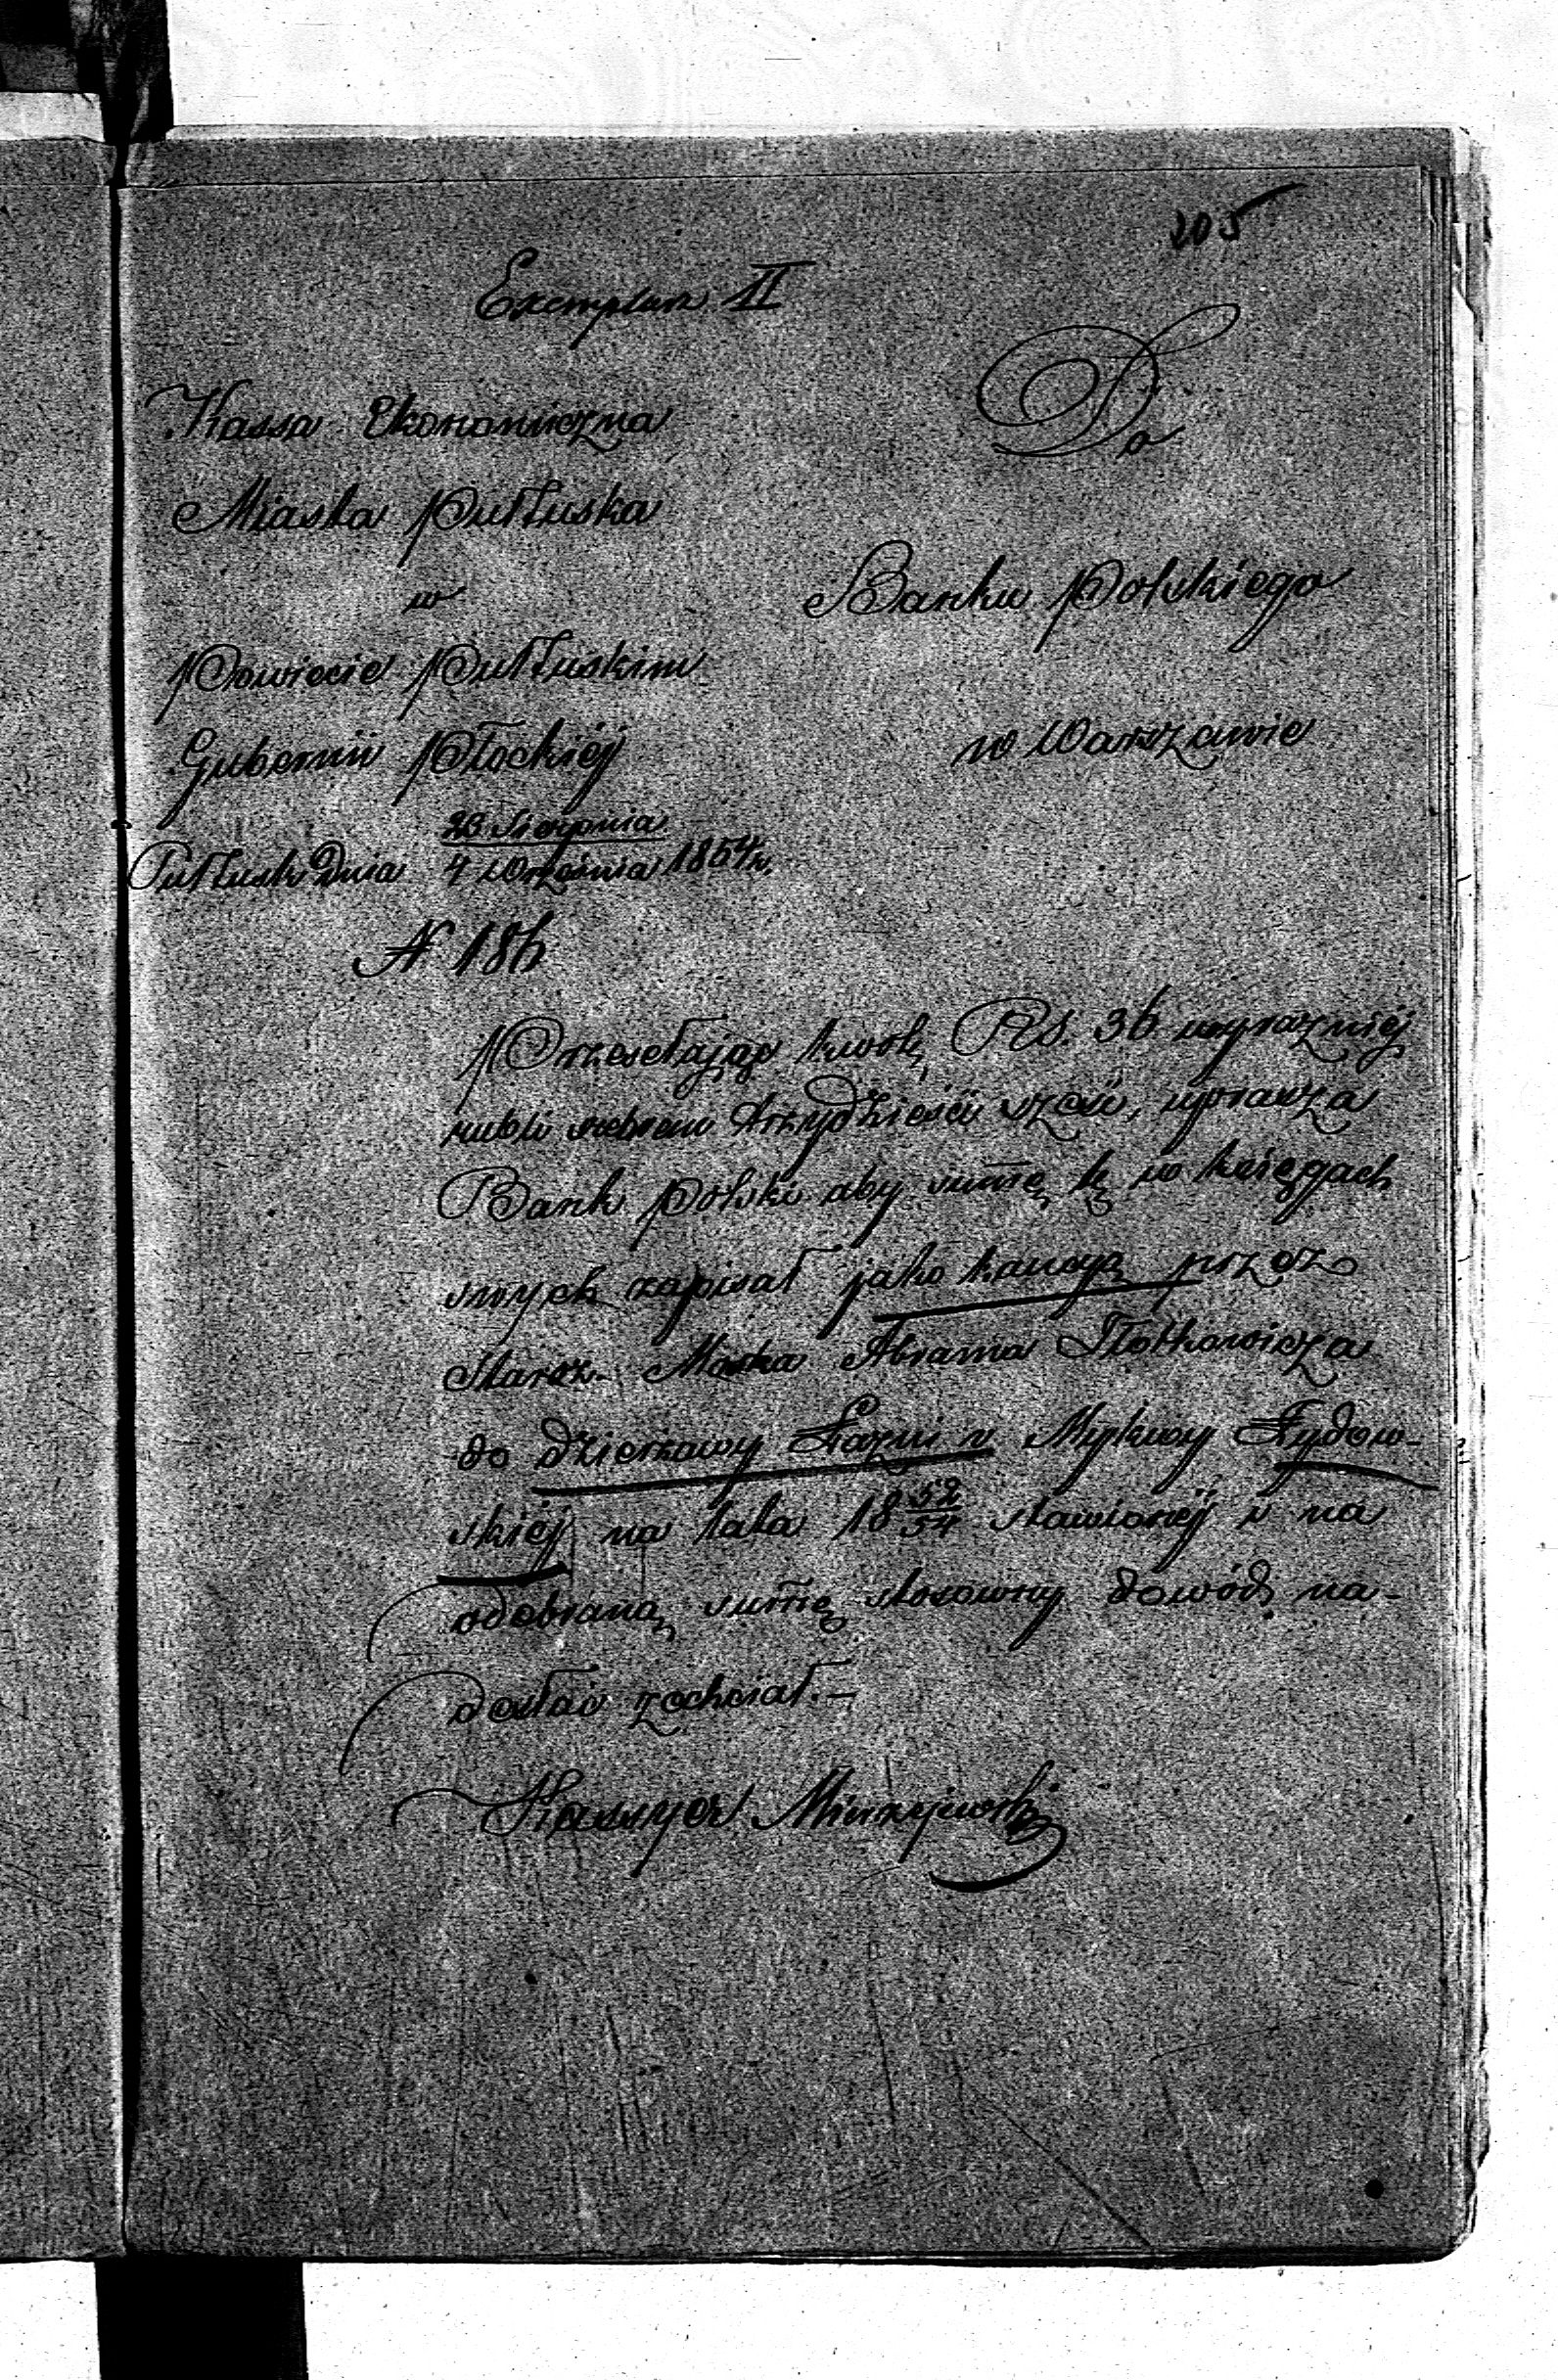 205
Exemplarz II
Kassa Ekonomiczna
Miasta Pułtuska
w
Powiecie Pułtuskim
Gubernii Płockiéj
23 Sierpnia
Pułtusk Dnia 4 Września 1854 r.
N 186
Do
Banku Polskiego
w Warszawie
Przesełając kwotę RS. 36 wyrazniéj
rubli srebrem trzydzieści sześć, uprasza
Bank Polski aby summę tę w księgach
swych zapisał jako kaucyą przez
Staroz. Moska Abrama
do dzierzawy Łazni i Mykwy Żydow-
skiéj na lata 18 52/54 stawionéj i na
odebraną summę stosowny dowód na-
desłać zechciał.—
Kassyer